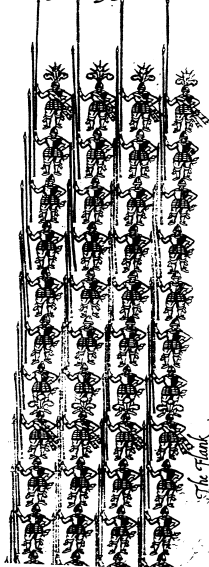 The Flank